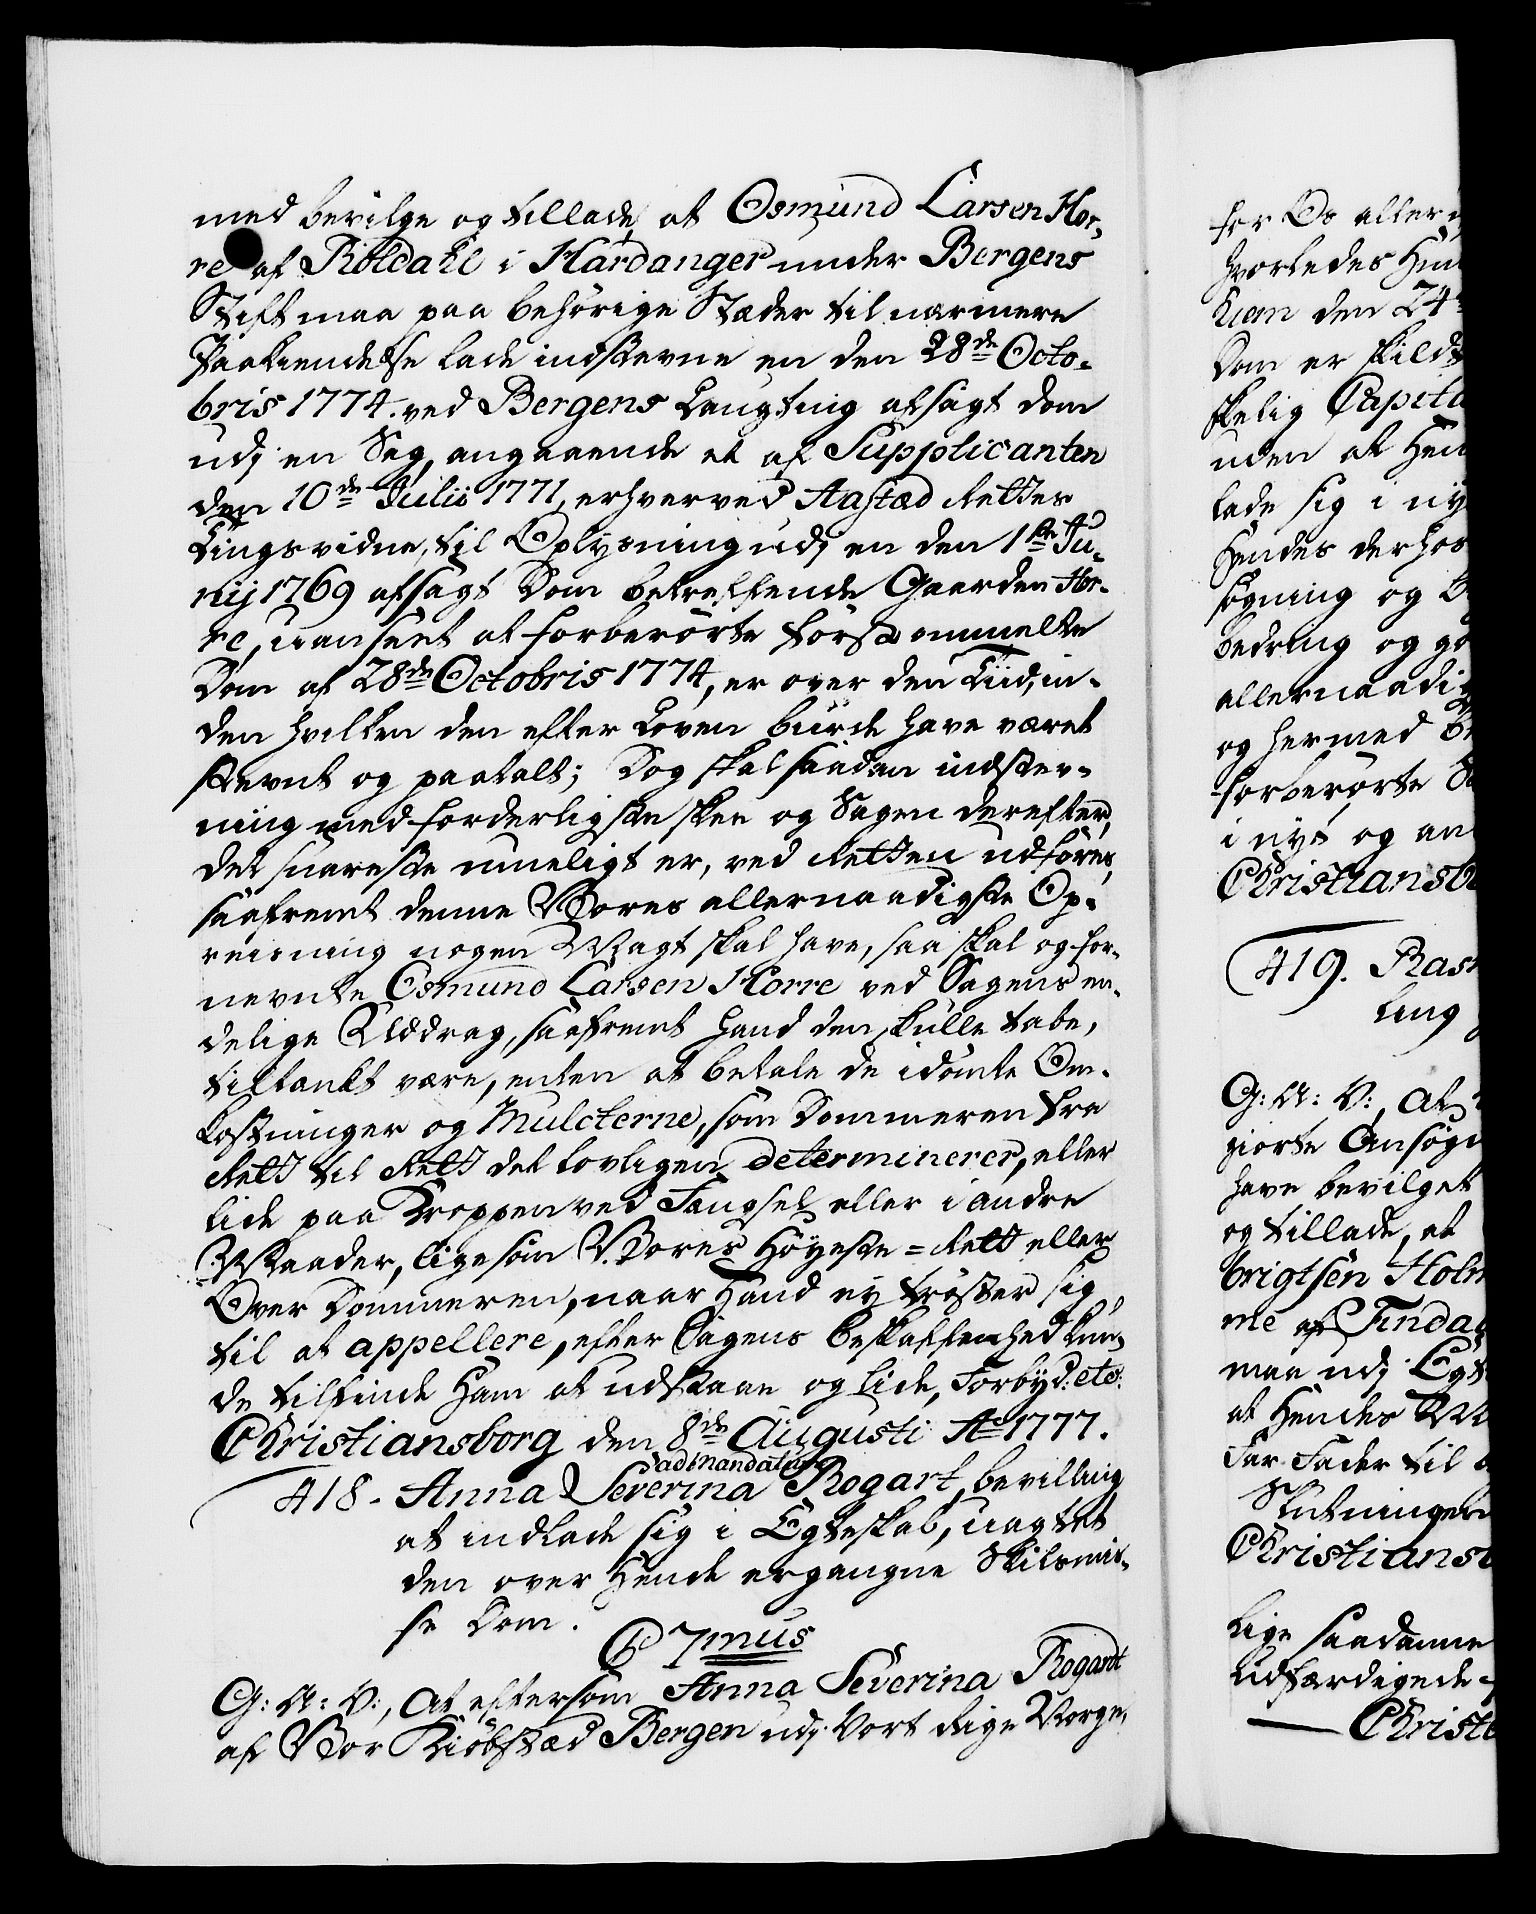 med bevilge og tillade, at Osmund Larsen Hor,,
re af Röldahl i Hardanger under Bergens
Stift maa paa behörige Stæder til nærmere
Paakiendelse lade indstevne en den 28de Octo-
bris 1774. ved Bergens Laugting afsagt dom
udj en Sag, angaaende et af Supplicanten
den 10de Julii 1771, erhverved Aastæd Rettes
Tingsvidne, til Oplysning udj en den 1ste Ju-
nij 1769 afsagt Dom betreffende Gaarden Hor-
re, uanseet at forberörte förstommelte
Dom af 28de Octobris 1774, er over den Tiid, in-
den hvilken den efter Loven burde have været
stevnt og paatalt; Dog skal saadan indstev-
ning med forderligste skee og Sagen derefter,
det snareste mueligt er, ved Retten udföres,
saafremt denne Vores allernaadigste Op-
reisning nogen Magt skal have, saa skal og for-
nevnte Osmund Larsen Horre ved Sagens en-
delige Uddrag, saafremt hand den skulle tabe,
tiltænkt være, enten at betale de idömte Om-
kostninger og Mulcterne, som Dommeren fra
Rett til Rett det lovligen determinerer, eller
lide paa Kroppen ved Fængsel eller i andre
Maader, ligesom Vores Höyeste-Rett eller
Over Dommeren, naar Hand ej tröster sig
til at appellere, efter Sagens beskaffenhed kun-
de tilfinde Ham at udstaae og lide, Forbyd: etc:
Christiansborg den 8de Augusti Ao 1777.
ad mandatum
418. Anna Severina Rogart, bevilling
at indlade sig i Egteskab, uagtet
den over Hende ergangne Skilsmis-
se Dom.
C 7mus
G: A: V:, At eftersom Anna Severina Rogart
af Vor Kiöbstæd Bergen udj Vort Rige Norge,
for Os aller
hvorledes Hun
den 24
Dom er skildt
skelig Capita
uden at Hen
lade sig i ny
Hendes derhos
sögning og
bedring og go
allernaadi
og hermed
forberörte
i nye og an
Christiansb
419. Ras
ling
G: A: V:, At
giorte Ansögn
have bevilget
og tillade, at
brigtsen Holm
me af Tinda
maa udj Egt
at Hendes
Far Fader til
Slutningen
Christiansb
Lige saadanne
udfærdigede
Christ